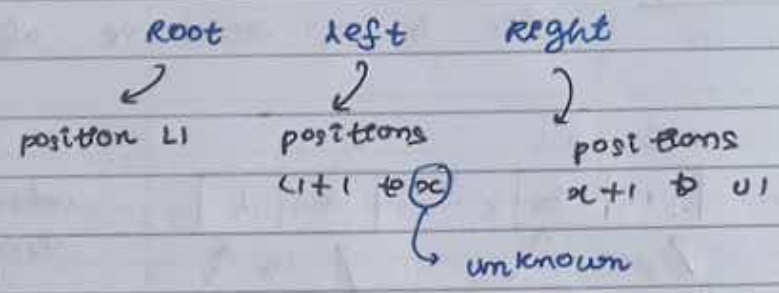 Root Left Right
position L1 positions positions
L1+1 to x x+1 to U1
unknown